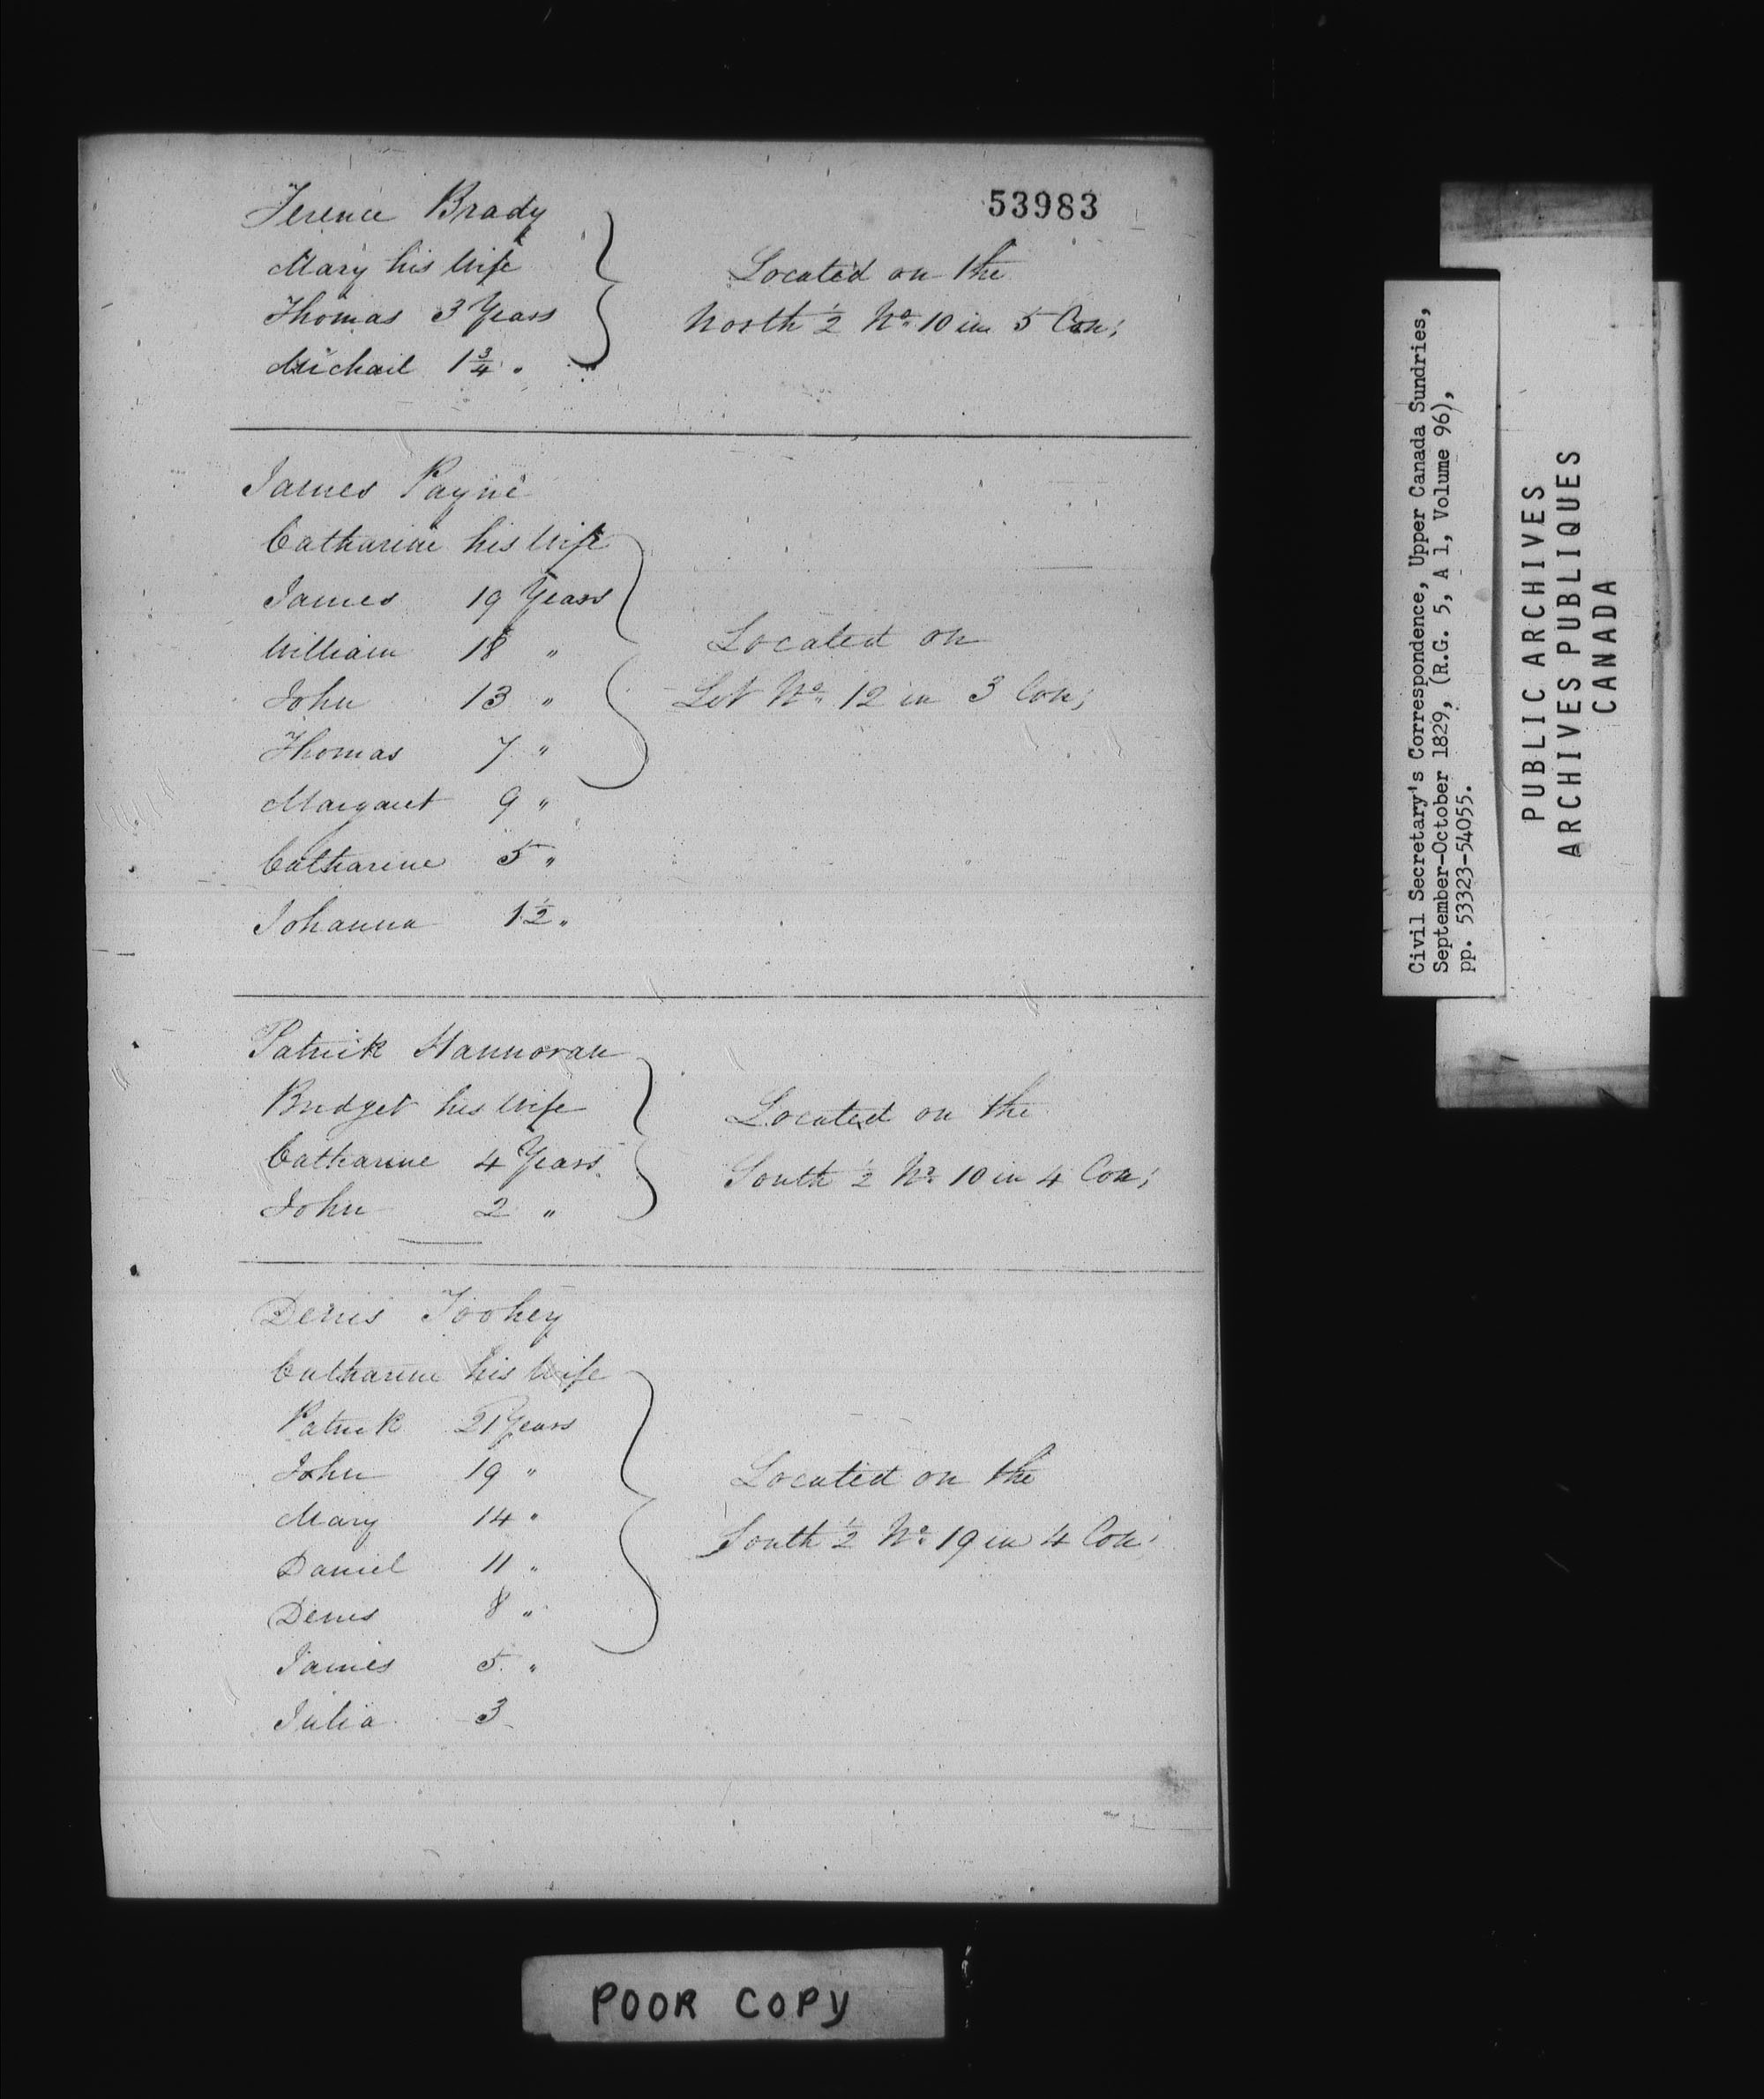 53983
Terence Brady
Mary his Wife
Thomas 3 Years
Michail 1 3/4 "
Located on the
North 1/2 No. 10 in 5 Con;
James Payne
Catharine his Wife
James 19 Years
William 18 "
John 13 "
Thomas 7 "
Margaret 9 "
Catharine 5 "
Johanna 1 1/2 "
Located on
Lot No. 12 in 3 Con;
Patrick Hannoran
Bridget his Wife
Catharine 4 Years
John 2 "
Located on the
South 1/2 No. 10 in 4 Con;
Denis Toohey
Catharine his Wife
Patrick 21 Years
John 19 "
Mary 14 "
Daniel 11 "
Denis 8 "
James 5 "
Julia 3
Located on the
South 1/2 No. 19 in 4 Con;
Civil Secretary's Correspondence, Upper Canada Sundries,
September-October 1829, (R.G. 5, A 1, Volume 96),
pp. 53323-54055.
PUBLIC ARCHIVES
ARCHIVES PUBLIQUES
CANADA
POOR COPY